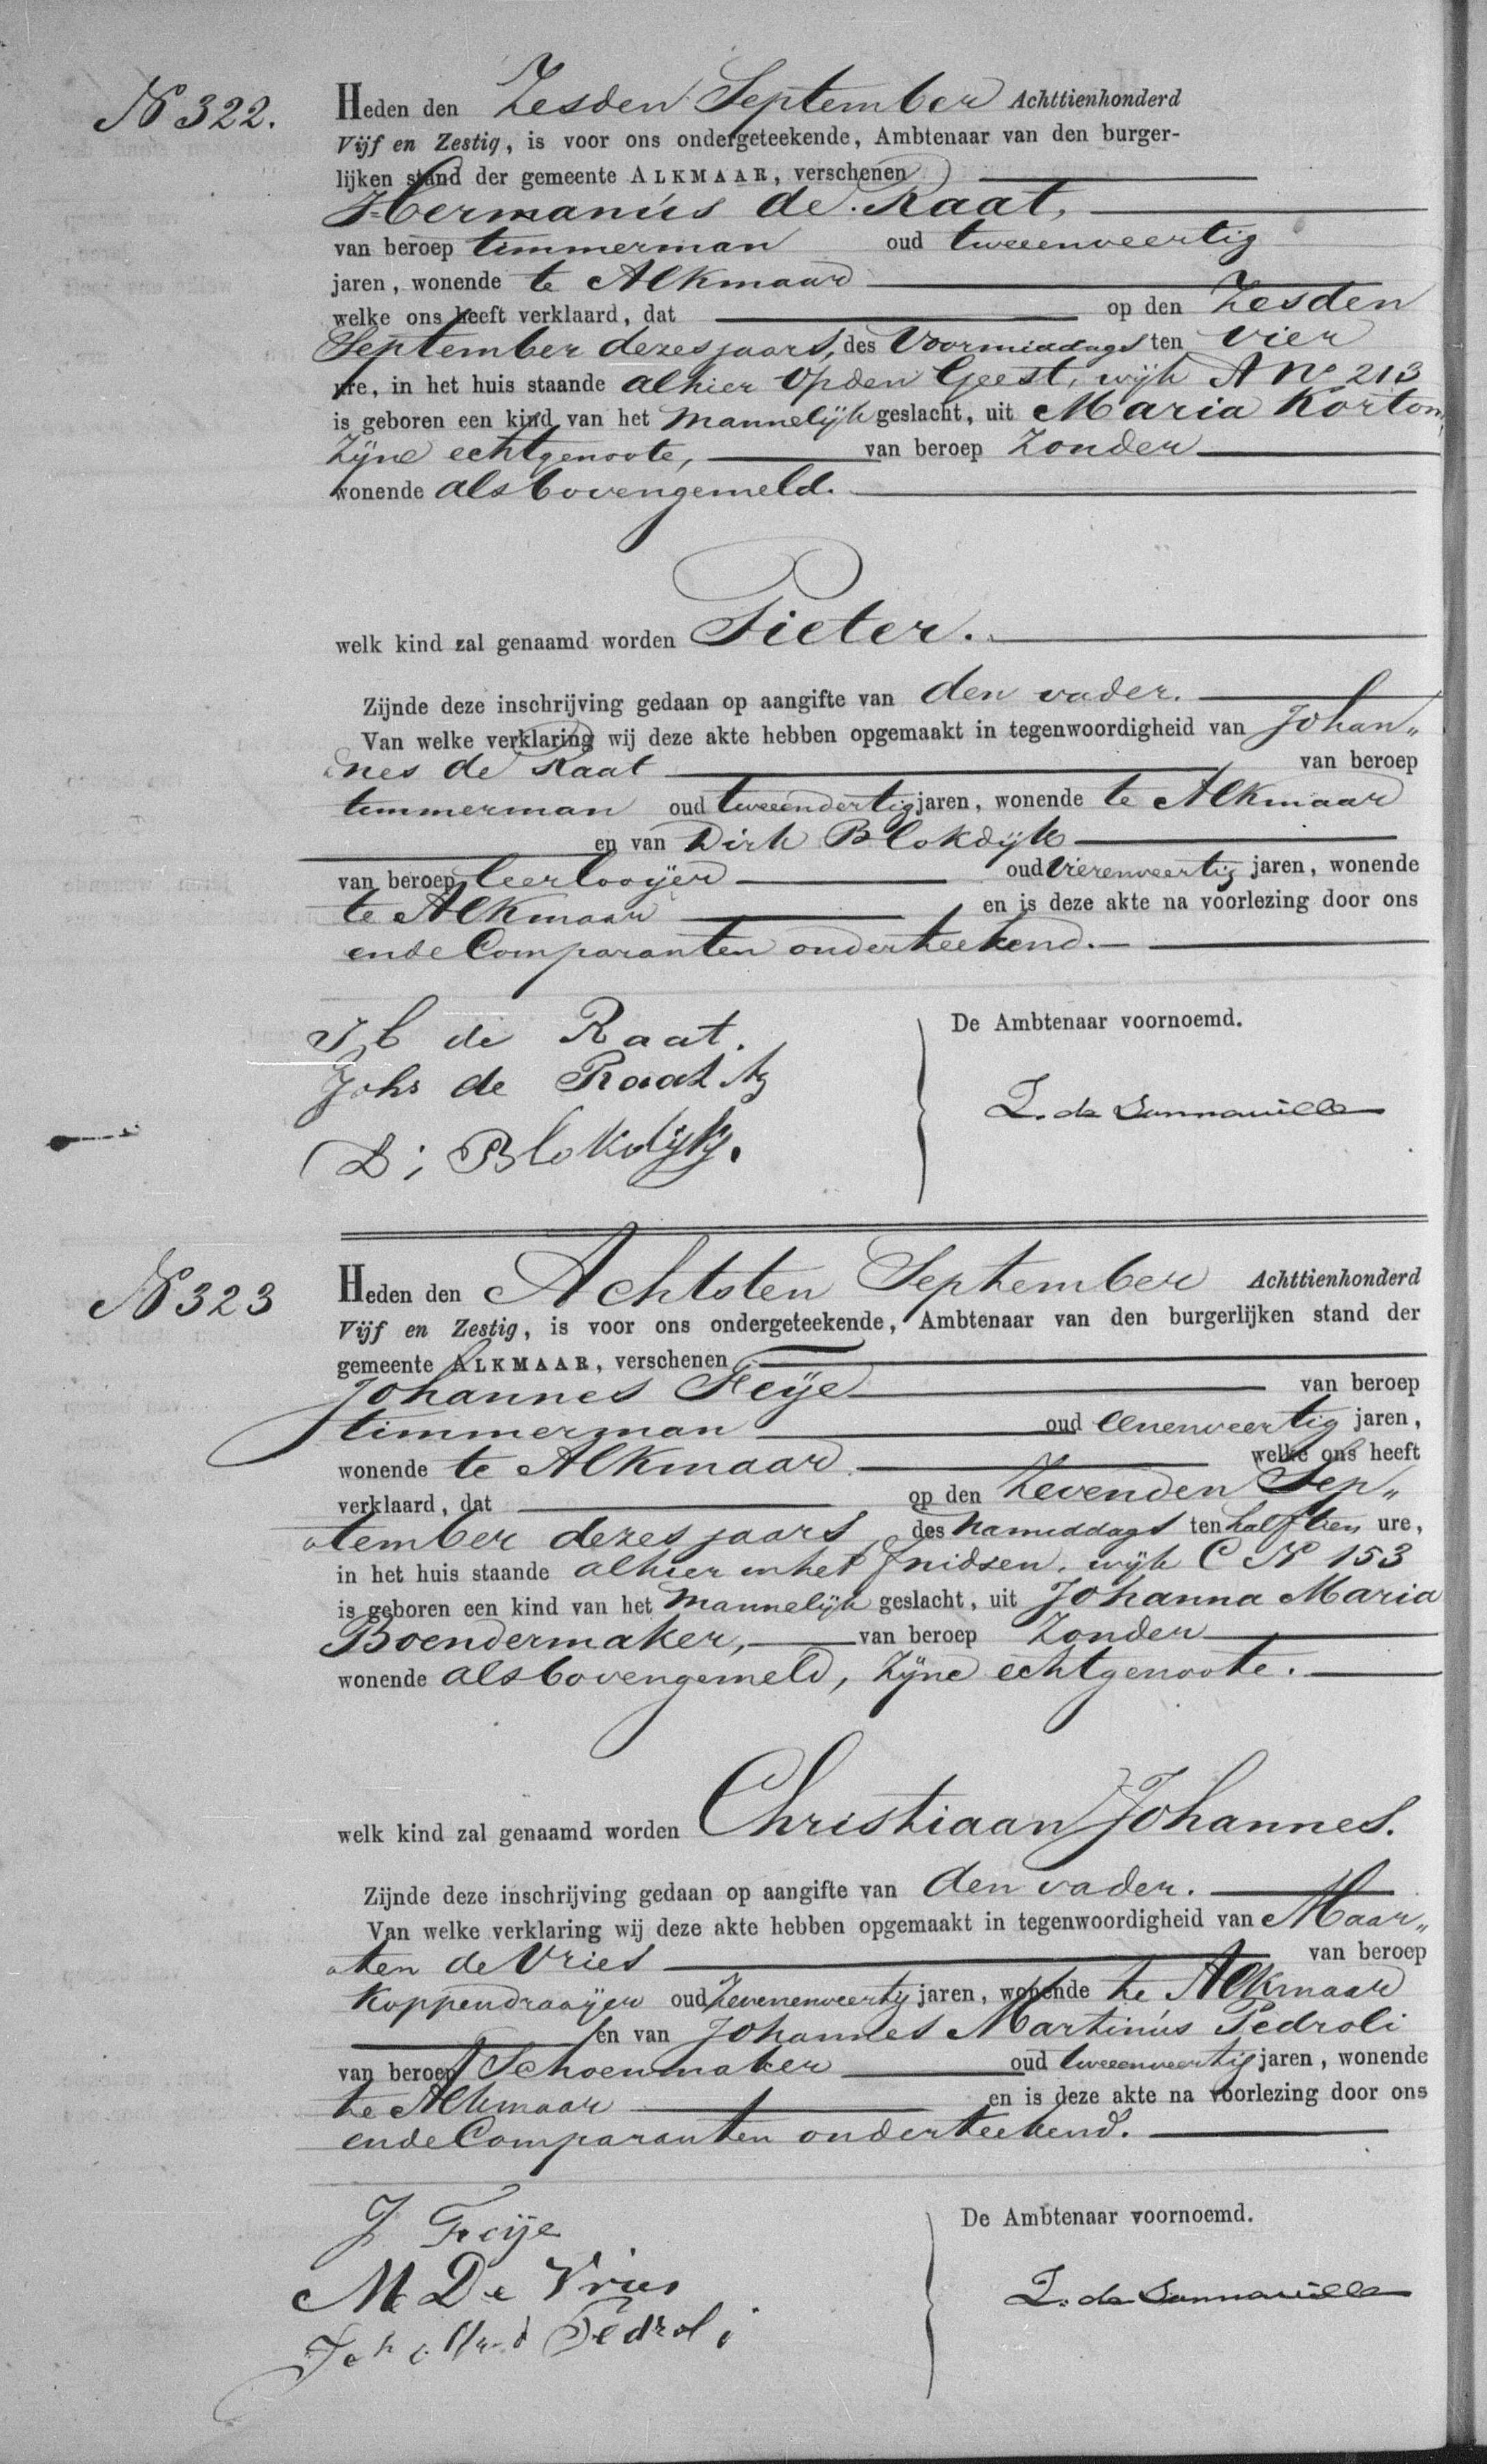 N° 322.
Heden den Zesden September Achttienhonderd
Vijf en Zestig, is voor ons ondergeteekende, Ambtenaar van den burger-
lijken stand der gemeente ALKMAAR, verschenen
Hermanus de Raat,
van beroep timmerman oud tweeenveertig
jaren, wonende te Alkmaar
welke ons heeft verklaard, dat op den Zesden
September dezes jaars, des Voormiddags ten vier
ure, in het huis staande alhier op den Geest, wijk A N° 213
is geboren een kind van het Mannelijk geslacht, uit Maria Korton,
Zijne echtgenoote, van beroep Zonder
wonende als bovengemeld.
welk kind zal genaamd worden Pieter.
Zijnde deze inschrijving gedaan op aangifte van den vader.
Van welke verklaring wij deze akte hebben opgemaakt in tegenwoordigheid van Johan„
„nes de Raat van beroep
timmerman oud tweeendertig jaren, wonende te Alkmaar
en van Dirk Blokdijk
van beroep leerlooijer oud Vierenveertig jaren, wonende
te Alkmaar en is deze akte na voorlezing door ons
ende Comparanten onderteekend.
de Raat.
Johs de Raat
D; Blokdijk.
De Ambtenaar voornoemd.
N° 323
Heden den Achtsten September Achttienhonderd
Vijf en Zestig, is voor ons ondergeteekende, Ambtenaar van den burgerlijken stand der
gemeente ALKMAAR, verschenen
Johannes Feije van beroep
timmerman oud eenenveertig jaren,
wonende te Alkmaar welke ons heeft
verklaard, dat op den Zevenden Sep„
„tember dezes jaars, des Namiddags ten half tien ure,
in het huis staande alhier in het Fnidsen, wijk C N° 153
is geboren een kind van het Mannelijk geslacht, uit Johanna Maria
Boendermaker, van beroep Zonder
wonende als bovengemeld, Zijne echtgenoote.
welk kind zal genaamd worden Christiaan Johannes.
Zijnde deze inschrijving gedaan op aangifte van den vader.
Van welke verklaring wij deze akte hebben opgemaakt in tegenwoordigheid van Maar„
„ten de Vries van beroep
Koppendraaijer oud Zevenenveertig jaren, wonende te Alkmaar
en van Johannes Martinus Pedroli
van beroep Schoenmaker oud tweeenveertig jaren, wonende
te Alkmaar en is deze akte na voorlezing door ons
ende Comparanten onderteekend.
J Feije
M De Vries
Pedroli
De Ambtenaar voornoemd.